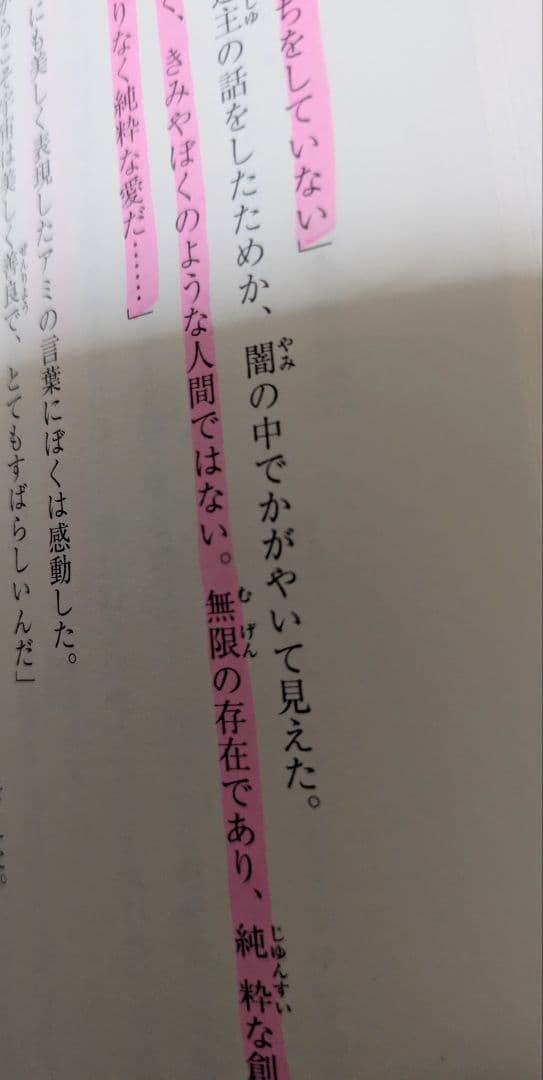 ちをしていない」
主の話をしたためか、闇の中でかがやいて見えた。
、きみやぼくのような人間ではない。無限の存在であり、純粋な創
りなく純粋な愛だ……」
にも美しく表現したアミの言葉にぼくは感動した。
らこそ宇宙は美しく善良で、とてもすばらしいんだ」